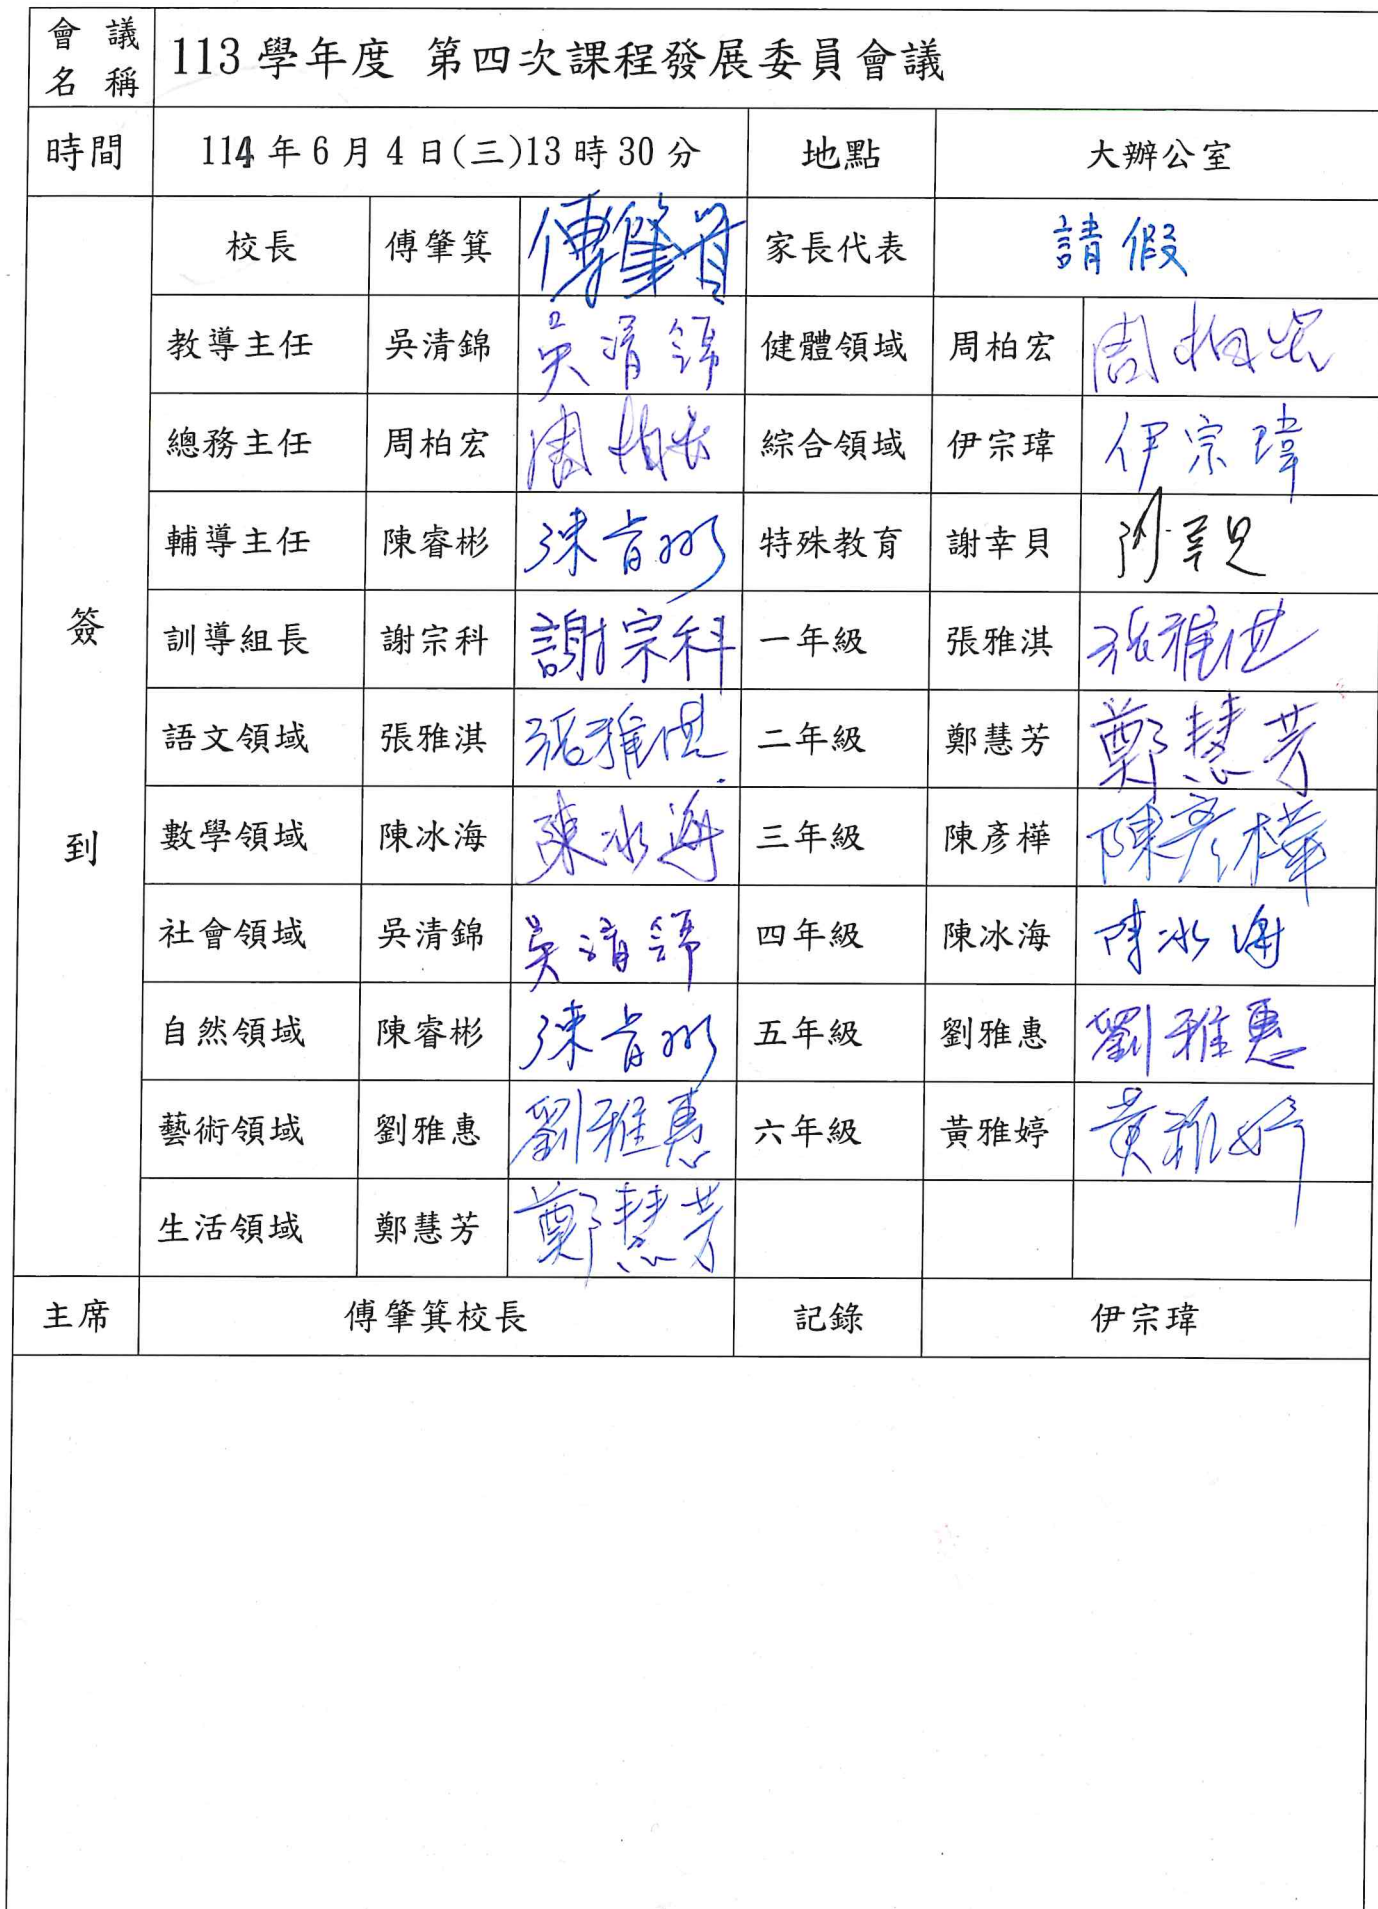 會議名稱 113學年度 第四次課程發展委員會議
時間 114年6月4日(三)13時30分 地點 大辦公室
簽到
校長 傅肇箕 傅肇箕 家長代表 請假
教導主任 吳清錦 吳清錦 健體領域 周柏宏 周柏宏
總務主任 周柏宏 周柏宏 綜合領域 伊宗瑋 伊宗瑋
輔導主任 陳睿彬 陳睿彬 特殊教育 謝幸貝 謝幸貝
訓導組長 謝宗科 謝宗科 一年級 張雅淇 張雅淇
語文領域 張雅淇 張雅淇 二年級 鄭慧芳 鄭慧芳
數學領域 陳冰海 陳冰海 三年級 陳彥樺 陳彥樺
社會領域 吳清錦 吳清錦 四年級 陳冰海 陳冰海
自然領域 陳睿彬 陳睿彬 五年級 劉雅惠 劉雅惠
藝術領域 劉雅惠 劉雅惠 六年級 黃雅婷 黃雅婷
生活領域 鄭慧芳 鄭慧芳
主席 傅肇箕校長 記錄 伊宗瑋